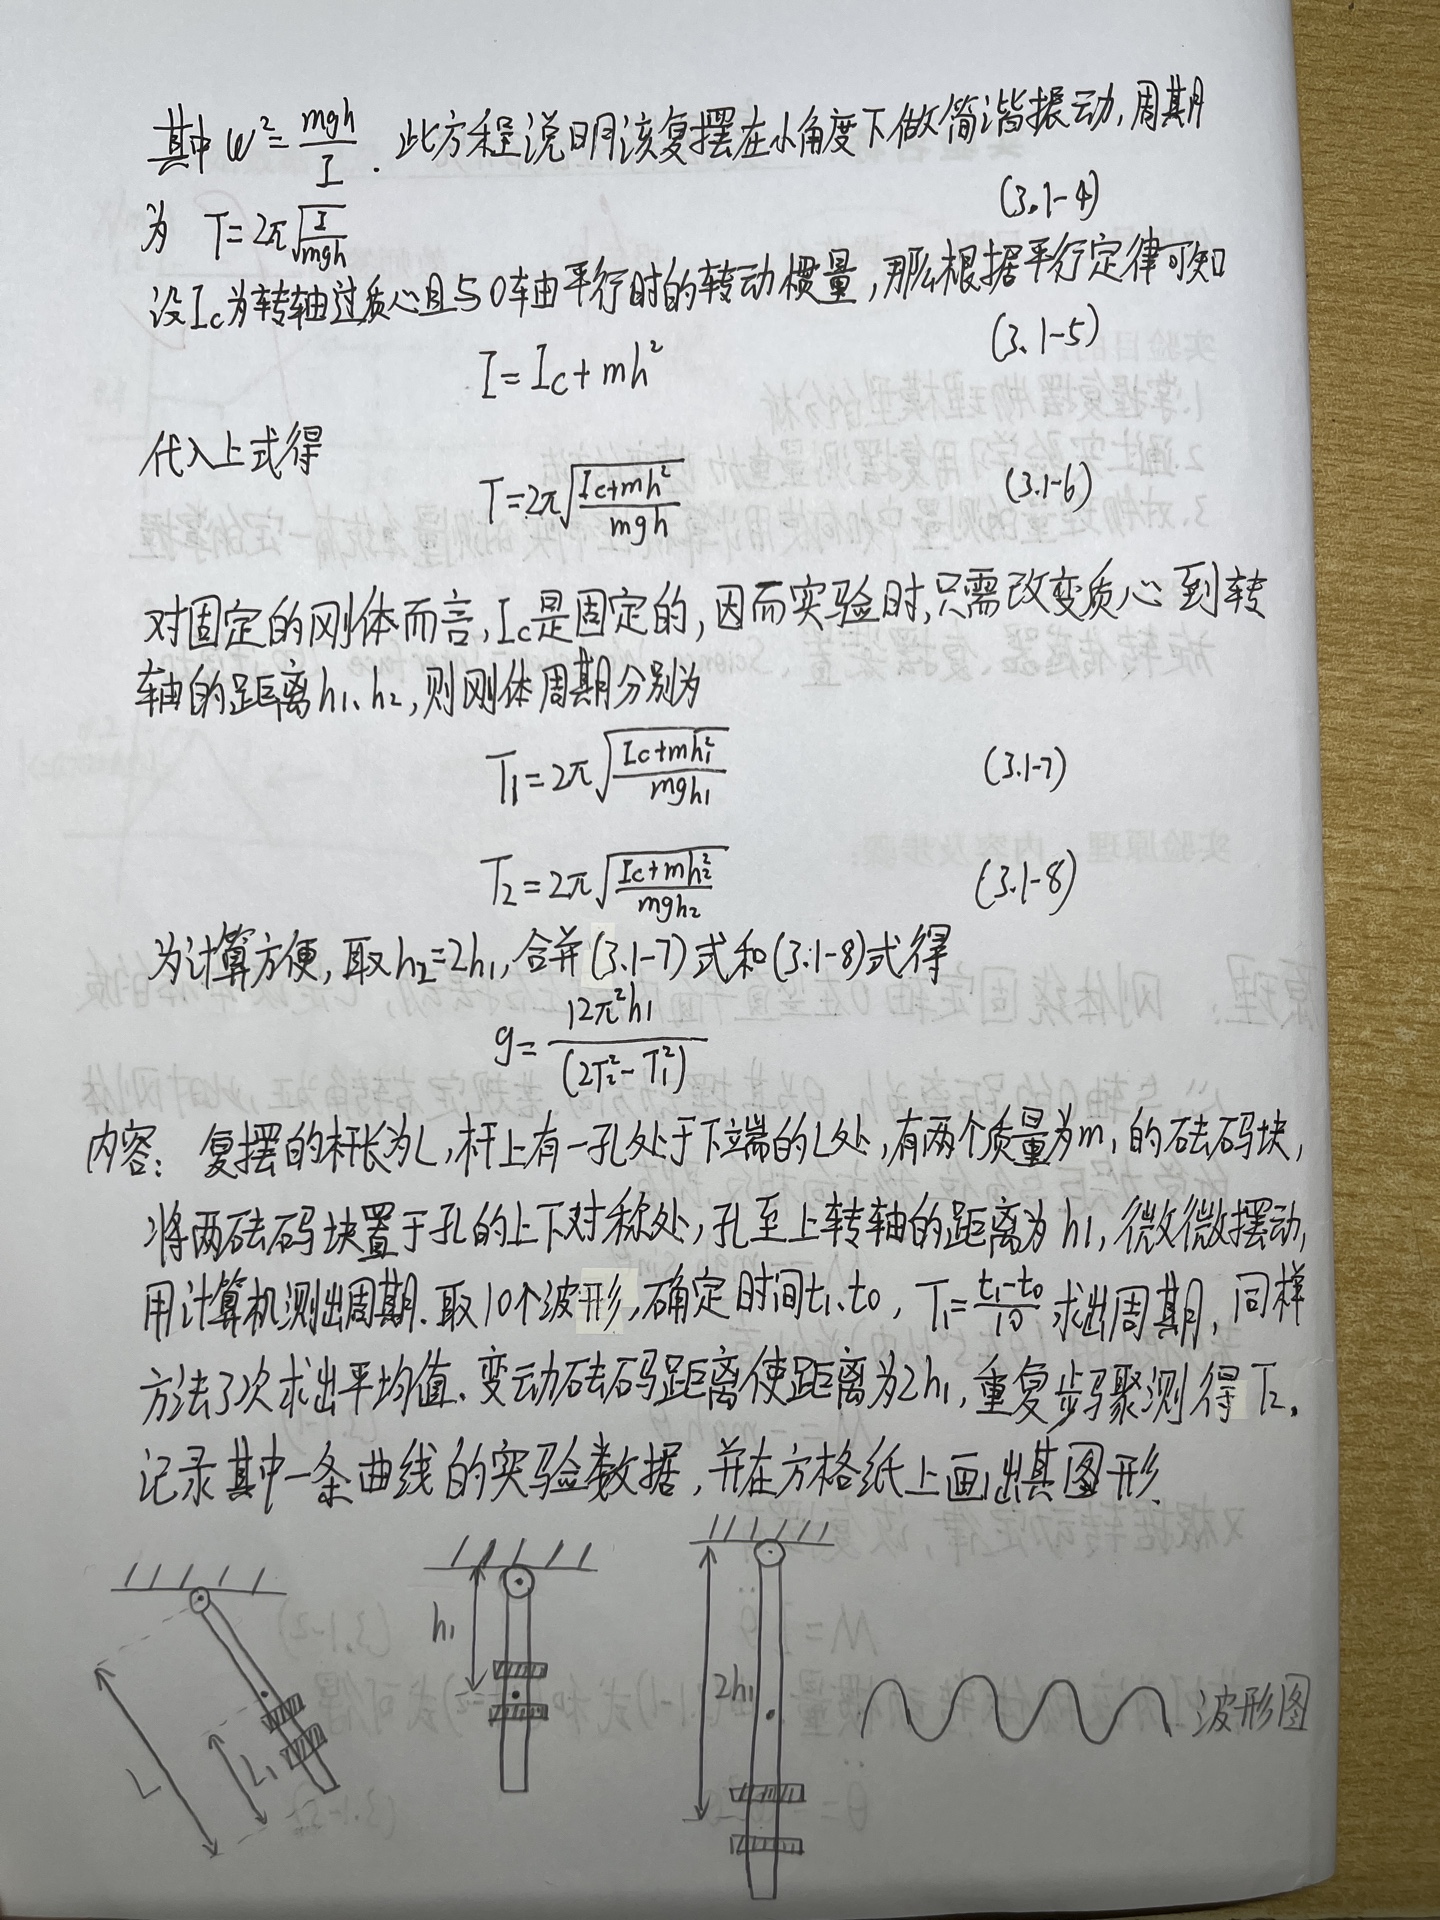 其中 ω²=mgh/I . 此方程说明该复摆在小角度下做简谐振动,周期
为 T=2π√(I/mgh) (3.1-4)
设Ic为转轴过质心且与O轴平行时的转动惯量,那么根据平行定律可知
I=Ic+mh² (3.1-5)
代入上式得
T=2π√((Ic+mh²)/mgh) (3.1-6)
对固定的刚体而言,Ic是固定的,因而实验时,只需改变质心到转
轴的距离h₁、h₂,则刚体周期分别为
T₁=2π√((Ic+mh₁²)/mgh₁) (3.1-7)
T₂=2π√((Ic+mh₂²)/mgh₂) (3.1-8)
为计算方便,取h₂=2h₁,合并(3.1-7)式和(3.1-8)式得
g=12π²h₁/(2T₂²-T₁²)
内容:复摆的杆长为L,杆上有一孔处于下端的L处,有两个质量为m,的砝码块,
将两砝码块置于孔的上下对称处,孔至上转轴的距离为h₁,微微摆动,
用计算机测出周期.取10个波形,确定时间t₁、t₀,T₁=(t₁-t₀)/10求出周期,同样
方法了次求出平均值.变动砝码距离使距离为2h₁,重复步骤测得T₂.
记录其中一条曲线的实验数据,并在方格纸上画出其图形.
L
L₁
h₁
2h₁
波形图